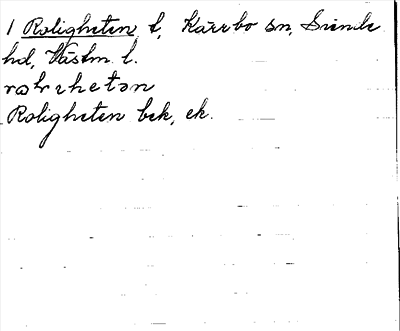 1 Roligheten t, Kärrbo sn, Siende
hd, Västm. l.
rolιheten
Roligheten bek, ek.